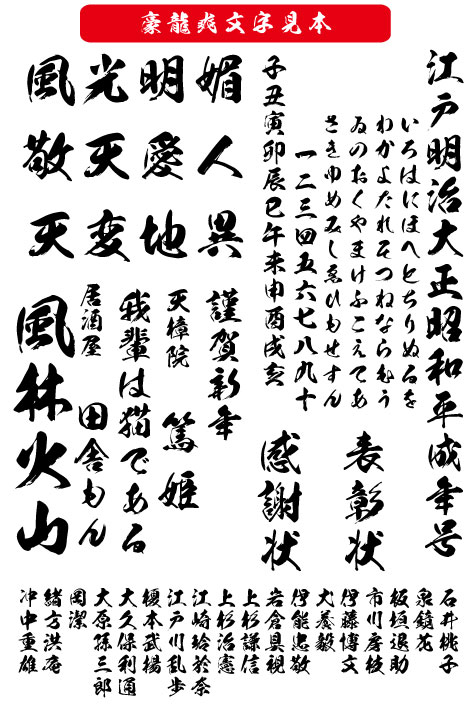 豪龍爽文字見本
江戸明治大正昭和平成年号
いろはにほへとちりぬるを
わかよたれそつねならむう
ゐのおくやまけふこえてあ
さきゆめみしゑひもせすん
一二三四五六七八九十
子丑寅卯辰巳午未申酉戌亥
表彰状
感謝状
風光明媚
敬天愛人
天変地異
謹賀新年
天樟院
篤姫
我輩は猫である
居酒屋
田舎もん
風林火山
石井桃子
泉鏡花
板垣退助
市川房枝
伊藤博文
犬養毅
伊能忠敬
岩倉具視
上杉謙信
上杉治憲
江崎玲於奈
江戸川乱歩
榎本武揚
大久保利通
大原孫三郎
岡潔
緒方洪庵
冲中重雄